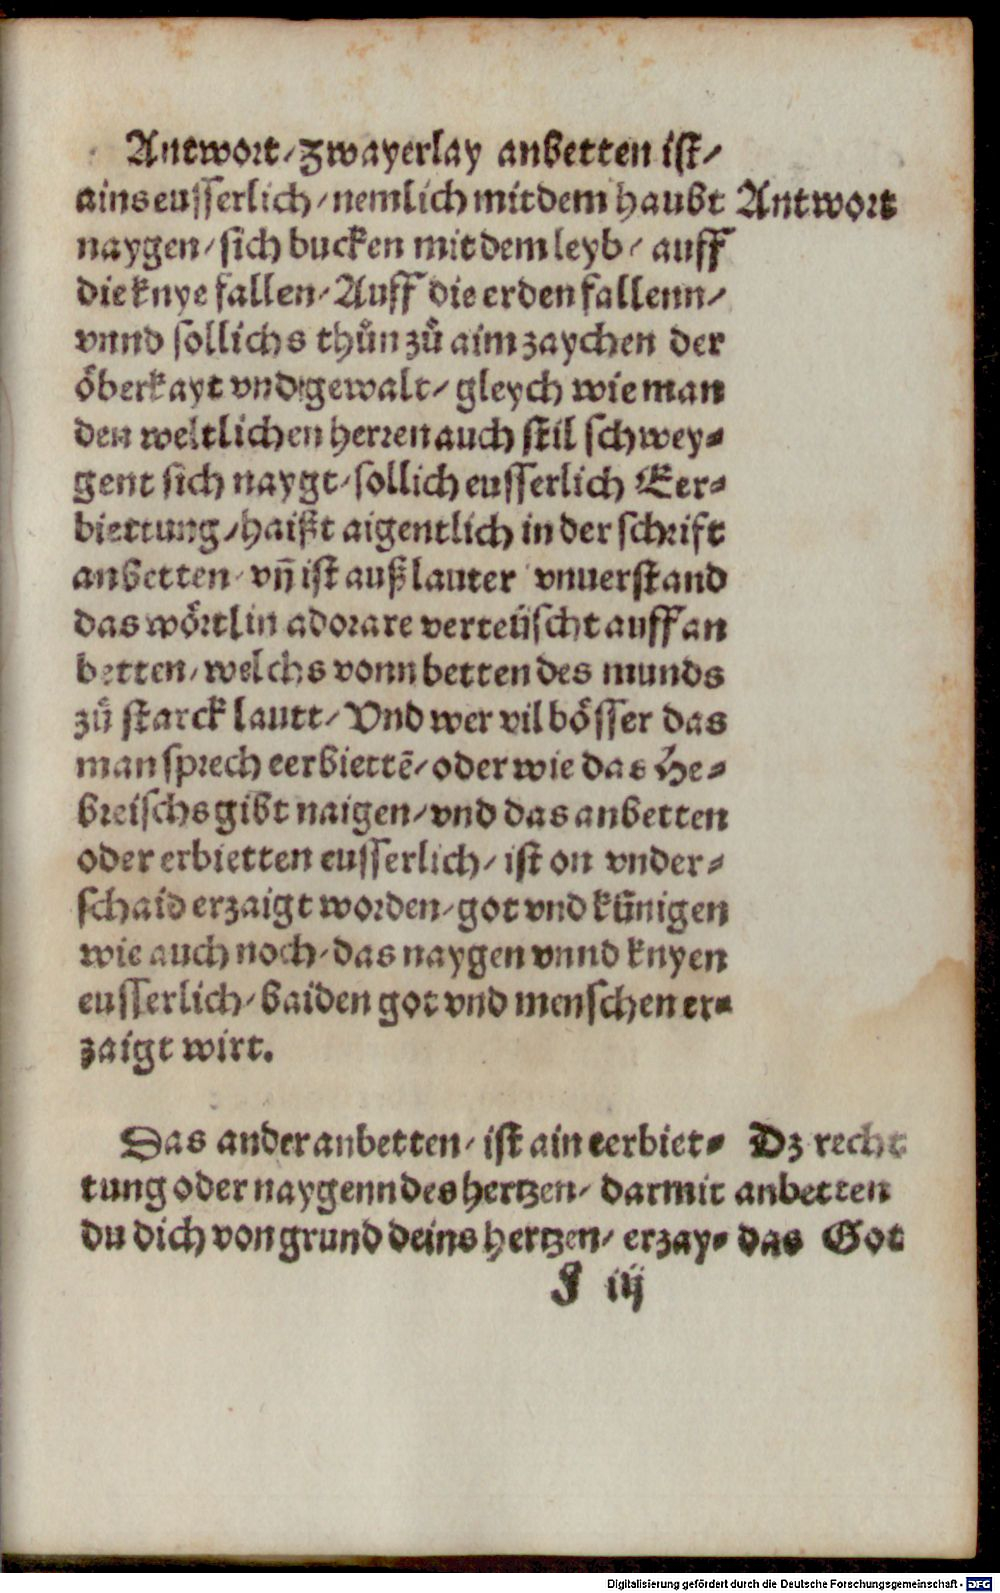 Antwort / zwayerlay anbetten ist /
ains eusserlich / nemlich mit dem haubt
Antwort
naygen / sich bucken mit dem leyb / auff
die knye fallen / Auff die erden fallenn /
vnnd sollichs thuͦn zuͦ aim zaychen der
oͤberkayt vnd gewalt / gleych wie man
den weltlichen herren auch stil schwey-
gent sich naygt / sollich eusserlich Eer-
biettung / haißt aigentlich in der schrift
anbetten / vn̄ ist auß lauter vnuerstand
das woͤrtlin adorare verteüscht auff an
betten / welchs vonn betten des munds
zuͦ starck lautt / Vnd wer vil boͤsser das
man sprech eerbiettē / oder wie das He-
breischs gibt naigen / vnd das anbetten
oder erbietten eusserlich / ist on vnder-
schaid erzaigt worden / got vnd künigen
wie auch noch / das naygen vnnd knyen
eusserlich / baiden got vnd menschen er-
zaigt wirt.
Das ander anbetten / ist ain eerbiet-
tung oder naygenn des hertzen / darmit
du dich von grund deins hertzen / erzay-
Dz recht
anbetten
das Got
F iij
Digitalisierung gefördert durch die Deutsche Forschungsgemeinschaft - DFG